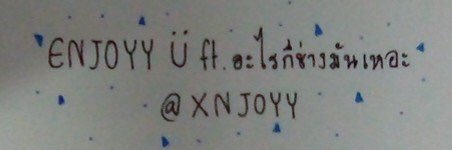 ENJOYY Ü ft. อะไรก็ช่างมันเหอะ
@XNJOYY